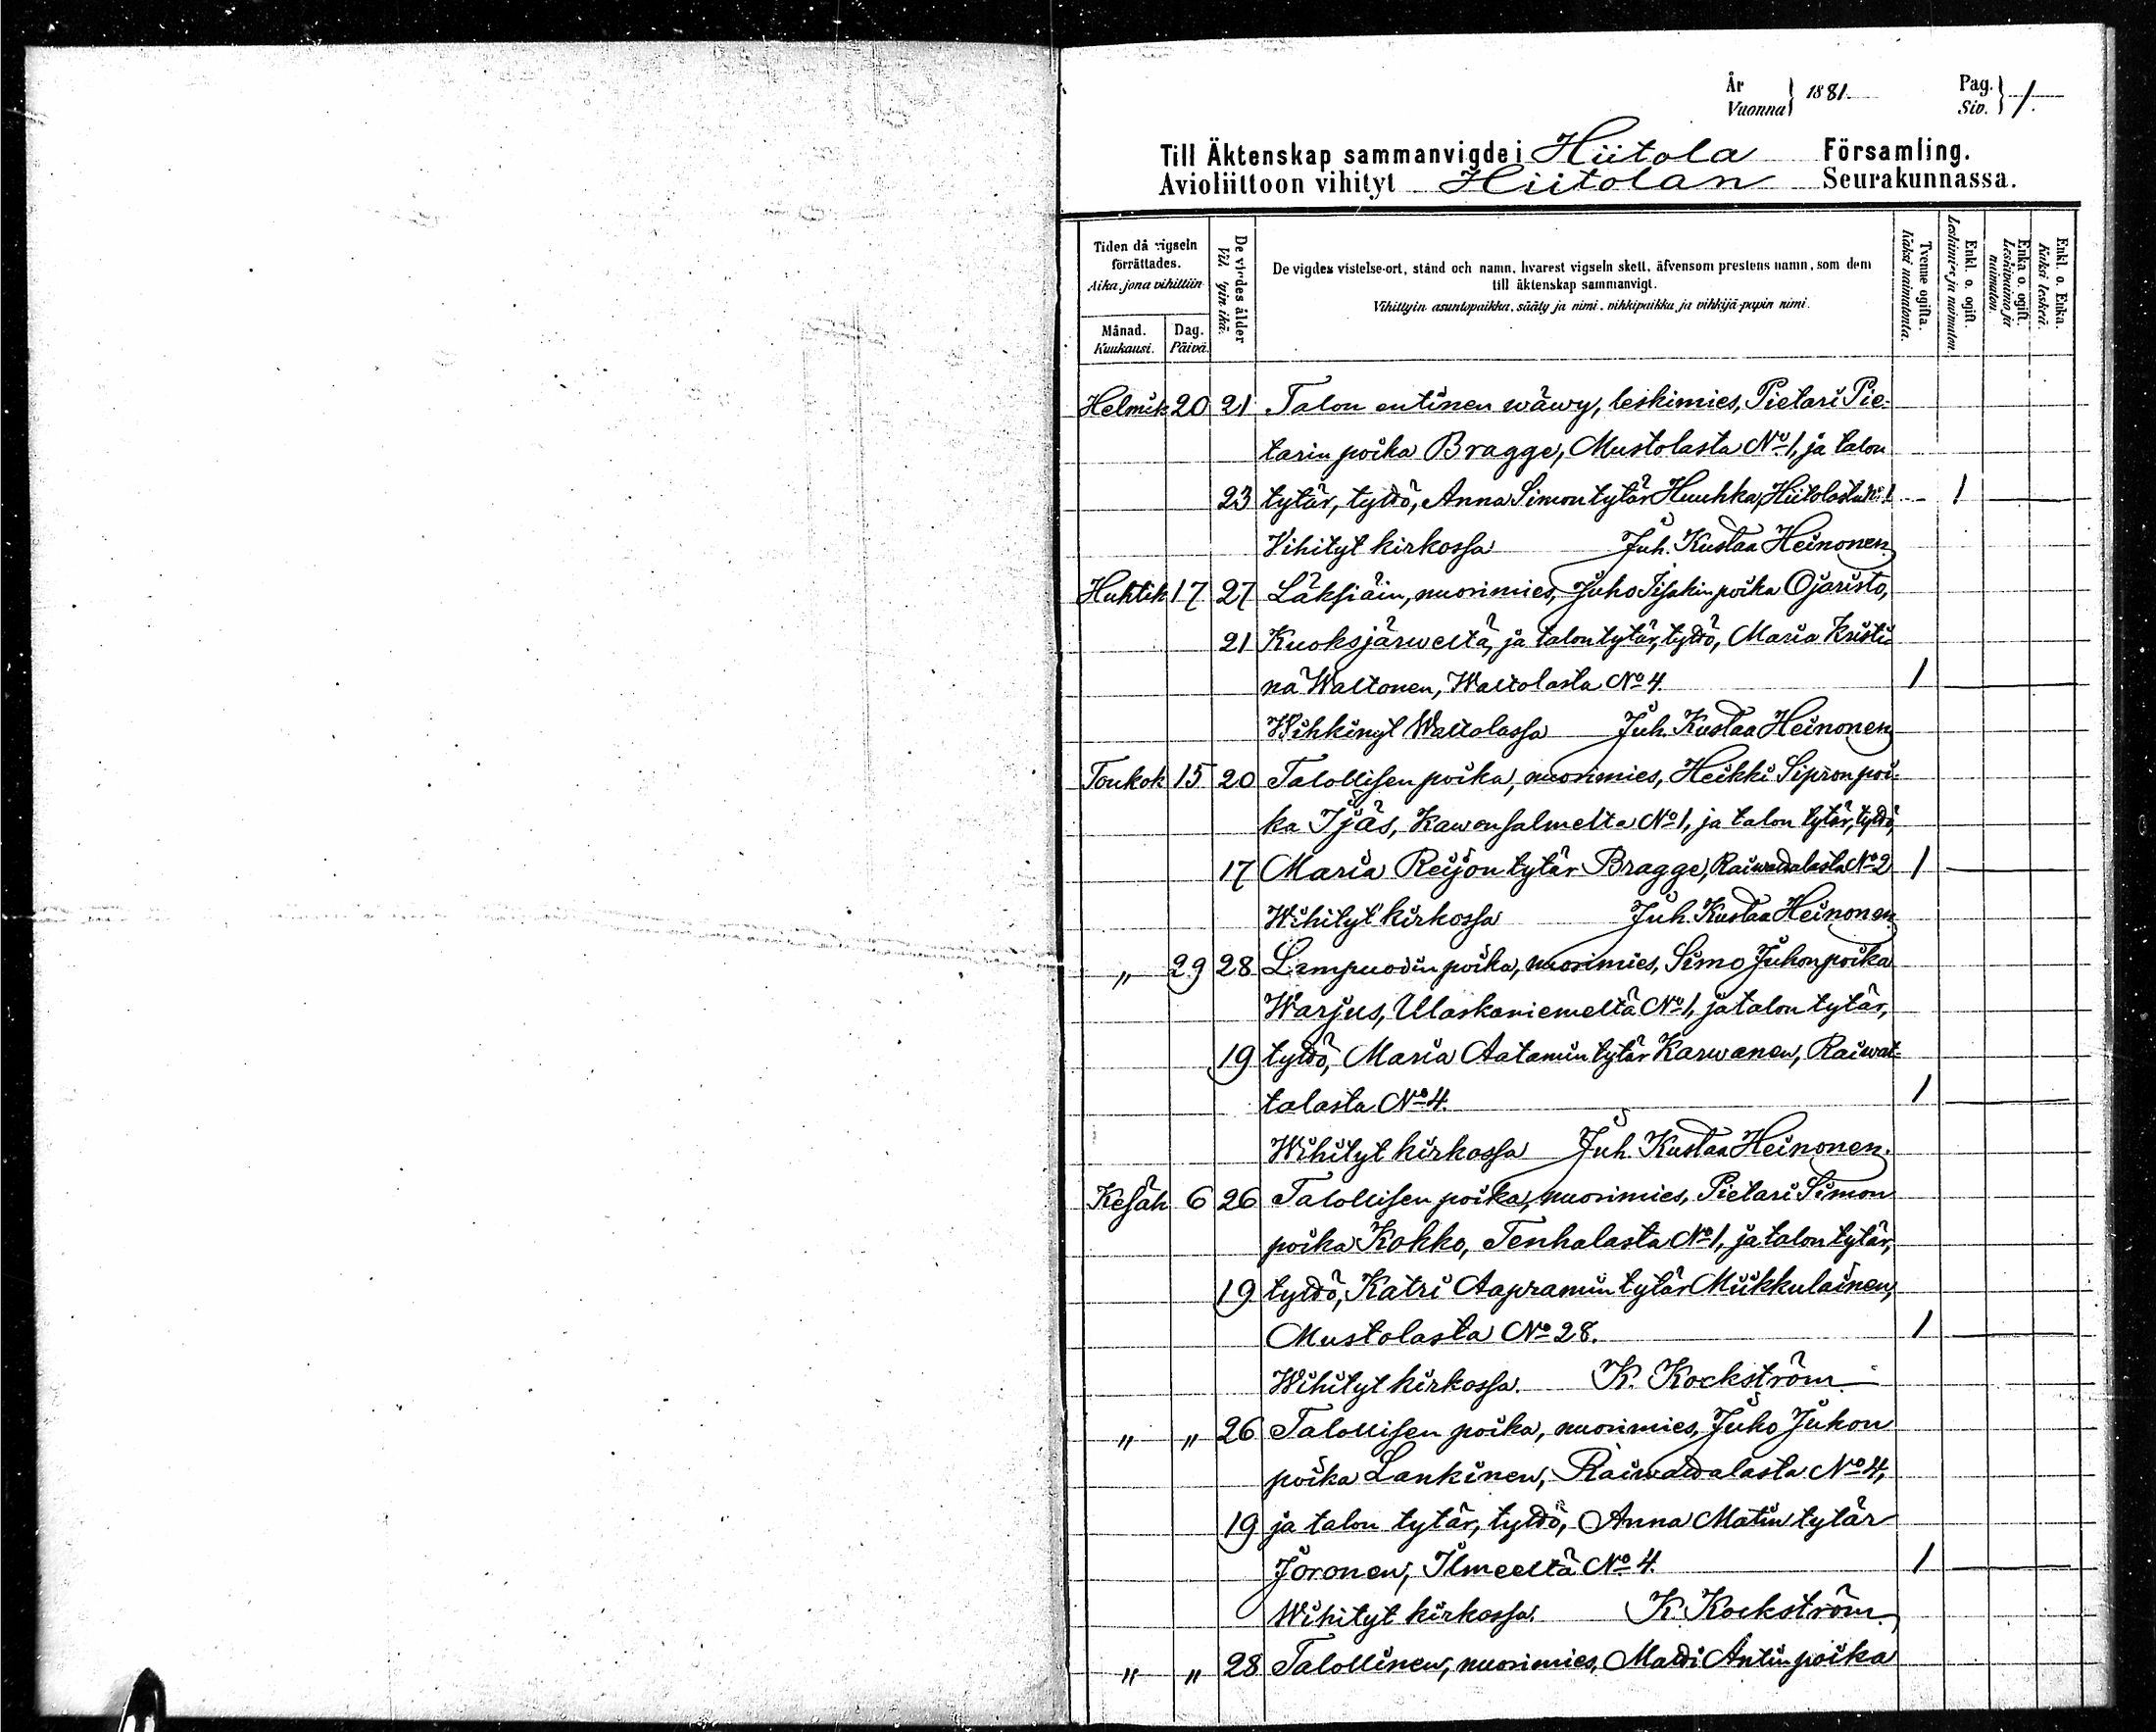 År Vuonna 1881. Pag. Siv. 1.
Till Äktenskap sammanvigde i Hiitola Församling.
Avioliittoon vihityt Hiitolan Seurakunnassa.
Tiden då vigseln förrättades.
Aika, jona vihittiin
Månad. Kuukausi.
Dag. Päivä.
De vigdes ålder
Vih. tyin ikä.
De vigdes vistelse-ort, stånd och namn, hvarest vigseln skett, äfvensom prestens namn, som dem
till äktenskap sammanvigt.
Vihittyin asuntopaikka, sääty ja nimi, vihkipaikka ja vihkijä-papin nimi.
Tvenne ogifta. Kaksi naimatonta.
Enkl. o. ogift. Leskimies ja naimaton.
Enka o. ogift. Leskivaimo ja naimaton.
Enkl. o. Enka. Kaksi leskeä.
Helmik 20 21 Talon entinen wäwy, leskimies, Pietari Pie-
tarin poika Bragge, Mustolasta No 1, ja talon
23 tytär, tyttö, Anna Simon tytär Huuhka, Hiitolasta No 1 1
Vihityt kirkossa Juh. Kustaa Heinonen
Huhtik 17 27 Läksiäin, nuorimies, Juho Iisakin poika Ojaristo,
21 Kuoksjärweltä, ja talon tytär, tyttö, Maria Kristi-
na Waltonen, Waltolasta No 4. 1
Wihkinyt Waltolassa Juh. Kustaa Heinonen
Toukok 15 20 Talollisen poika, nuorimies, Heikki Sipron poi-
ka Ijäs, Kawonsalmelta No 1, ja talon tytär, tyttö,
17 Maria Reijon tytär Bragge, Raiwattalasta No 2 1
Wihityt kirkossa Juh. Kustaa Heinonen
" 29 28 Lampuodin poika, nuorimies, Simo Juhon poika
Warjus, Ulaskaniemeltä No 1, ja talon tytär,
19 tyttö, Maria Aatamin tytär Karwanen, Raiwat-
talasta No 4. 1
Wihityt kirkossa Juh. Kustaa Heinonen.
Kesäk 6 26 Talollisen poika, nuorimies, Pietari Simon
poika Kokko, Tenhalasta No 1, ja talon tytär,
19 tyttö, Katri Aapramin tytär Mikkulainen,
Mustolasta No 28. 1
Wihityt kirkossa. K. Kockström
" " 26 Talollisen poika, nuorimies, Juho Juhon
poika Lankinen, Raiwattalasta No 4,
19 ja talon tytär, tyttö, Anna Matin tytär
Joronen, Ilmeeltä No 4. 1
Wihityt kirkossa. K. Kockström
" " 28 Talollinen, nuorimies, Matti Antin poika